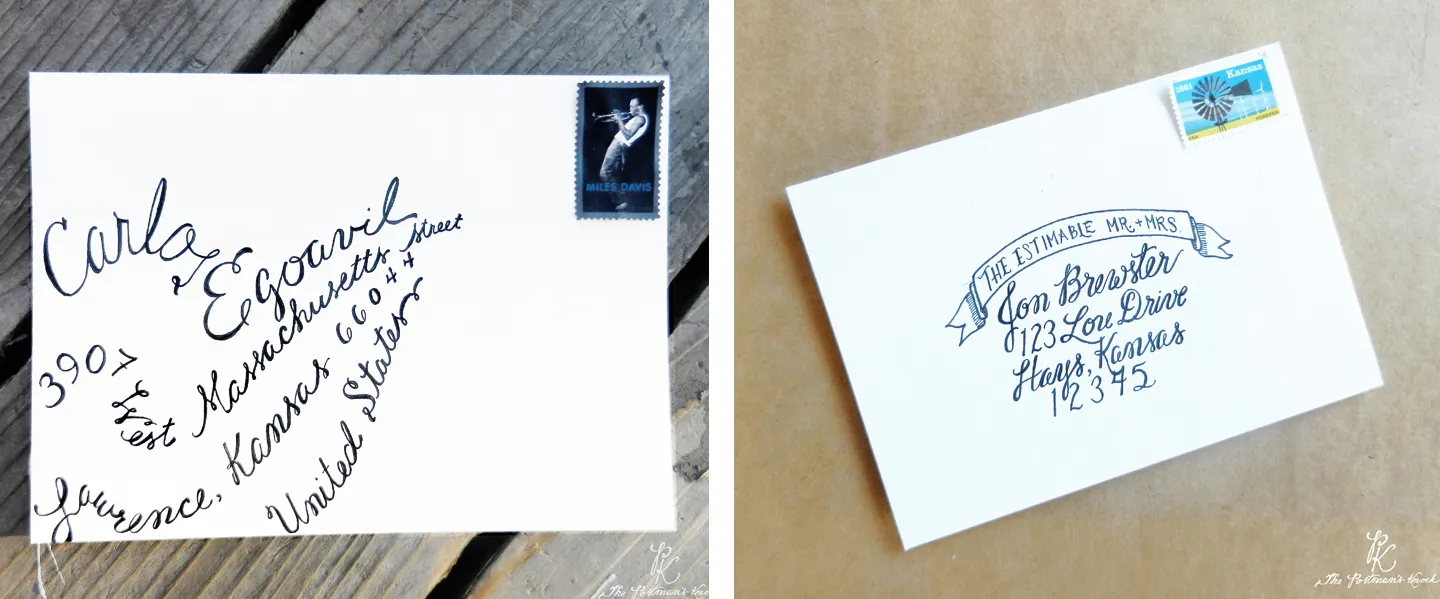 MILES DAVIS
Carla J Egoavil
3907 West Massachusetts Street
Lawrence, Kansas 66044
United States
PK
The Postman's Knock
1861 Kansas
USA FOREVER
THE ESTIMABLE MR.+MRS.
Jon Brewster
123 Lou Drive
Hays, Kansas
12345
PK
The Postman's Knock